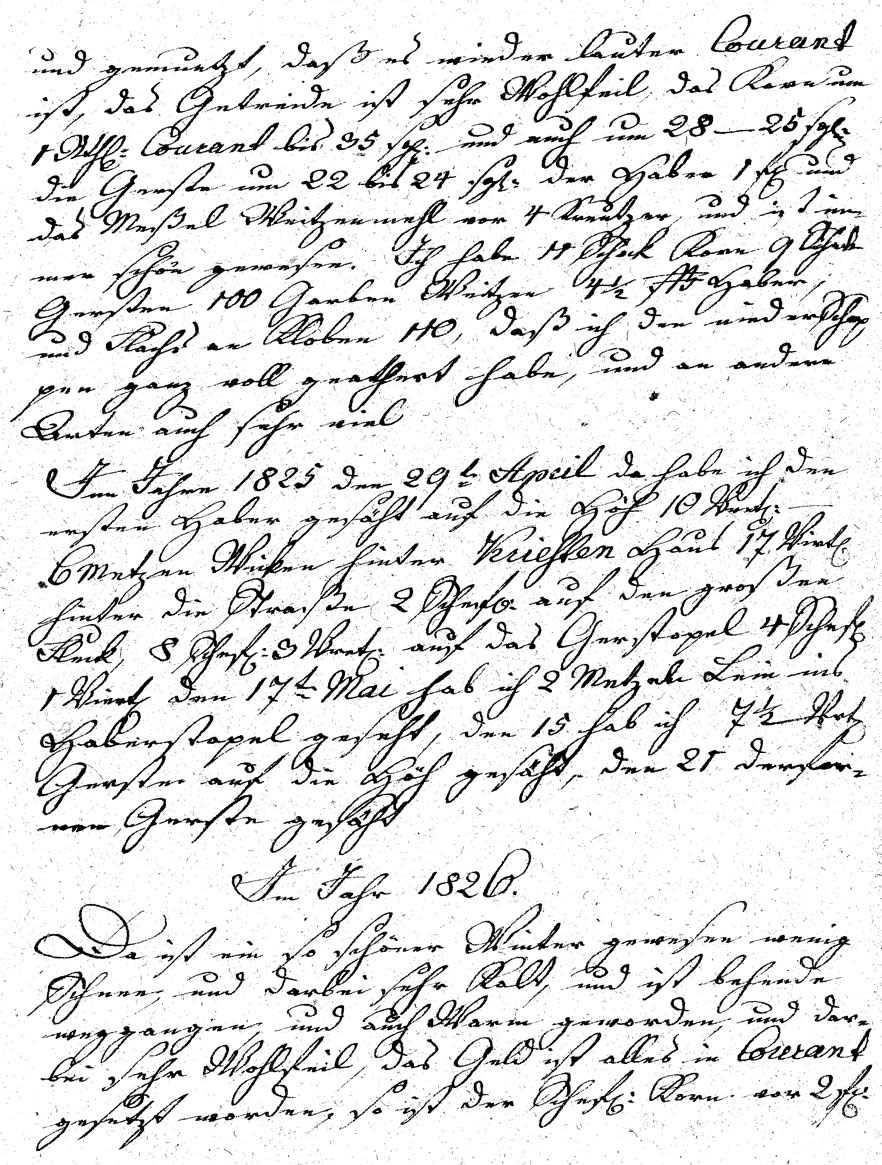 und gemuntzt, daß es wieder lauter Courant
ist, das Getreide ist sehr Wohlfeil, das Korn um
1 Rthl: Courant bis 35 sgl: und auch um 28 — 25 sgl:
die Gerste um 22 bis 24 sgl: der Haber 1 fl und
das Meßel Weitzenmehl vor 4 Kreutzer, und ist im-
mer schön gewesen. Ich habe 11 Schock Korn 9 Schock
Gersten 100 Garben Weitzen 4½ ßß Haber,
und Flachs an Kloben 110, daß ich den nieder Schop
pen ganz voll geathert habe, und an andere
Arten auch sehr viel
Im Jahre 1825 den 29t April da habe ich den
ersten Haber gesäht auf die Höh 10 Vrt:
6 Metzen Wicken hinter Kriesten Haus 17 Virtl
hinter die Straße 2 Schefl: auf den großen
Fleck, 8 Schefl: 3 Vrt: auf das Gerstopel 4 Schefl
1 Viertl den 17t Mai hab ich 2 Metzen Lein ins
Haberstopel geseht, den 15 hab ich 7½ Vrt
Gersten auf die Höh gesäht, den 21
Gerste gesäht
Im Jahr 1826.
Da ist ein so schöner Winter gewesen wenig
Schnee, und darbei sehr Kalt, und ist behende
weggangen, und auch Warm geworden, und dar-
bei sehr Wohlfeil, das Geld ist alles in Courant
gesetzt worden, so ist der Schefl: Korn vor 2 fl: